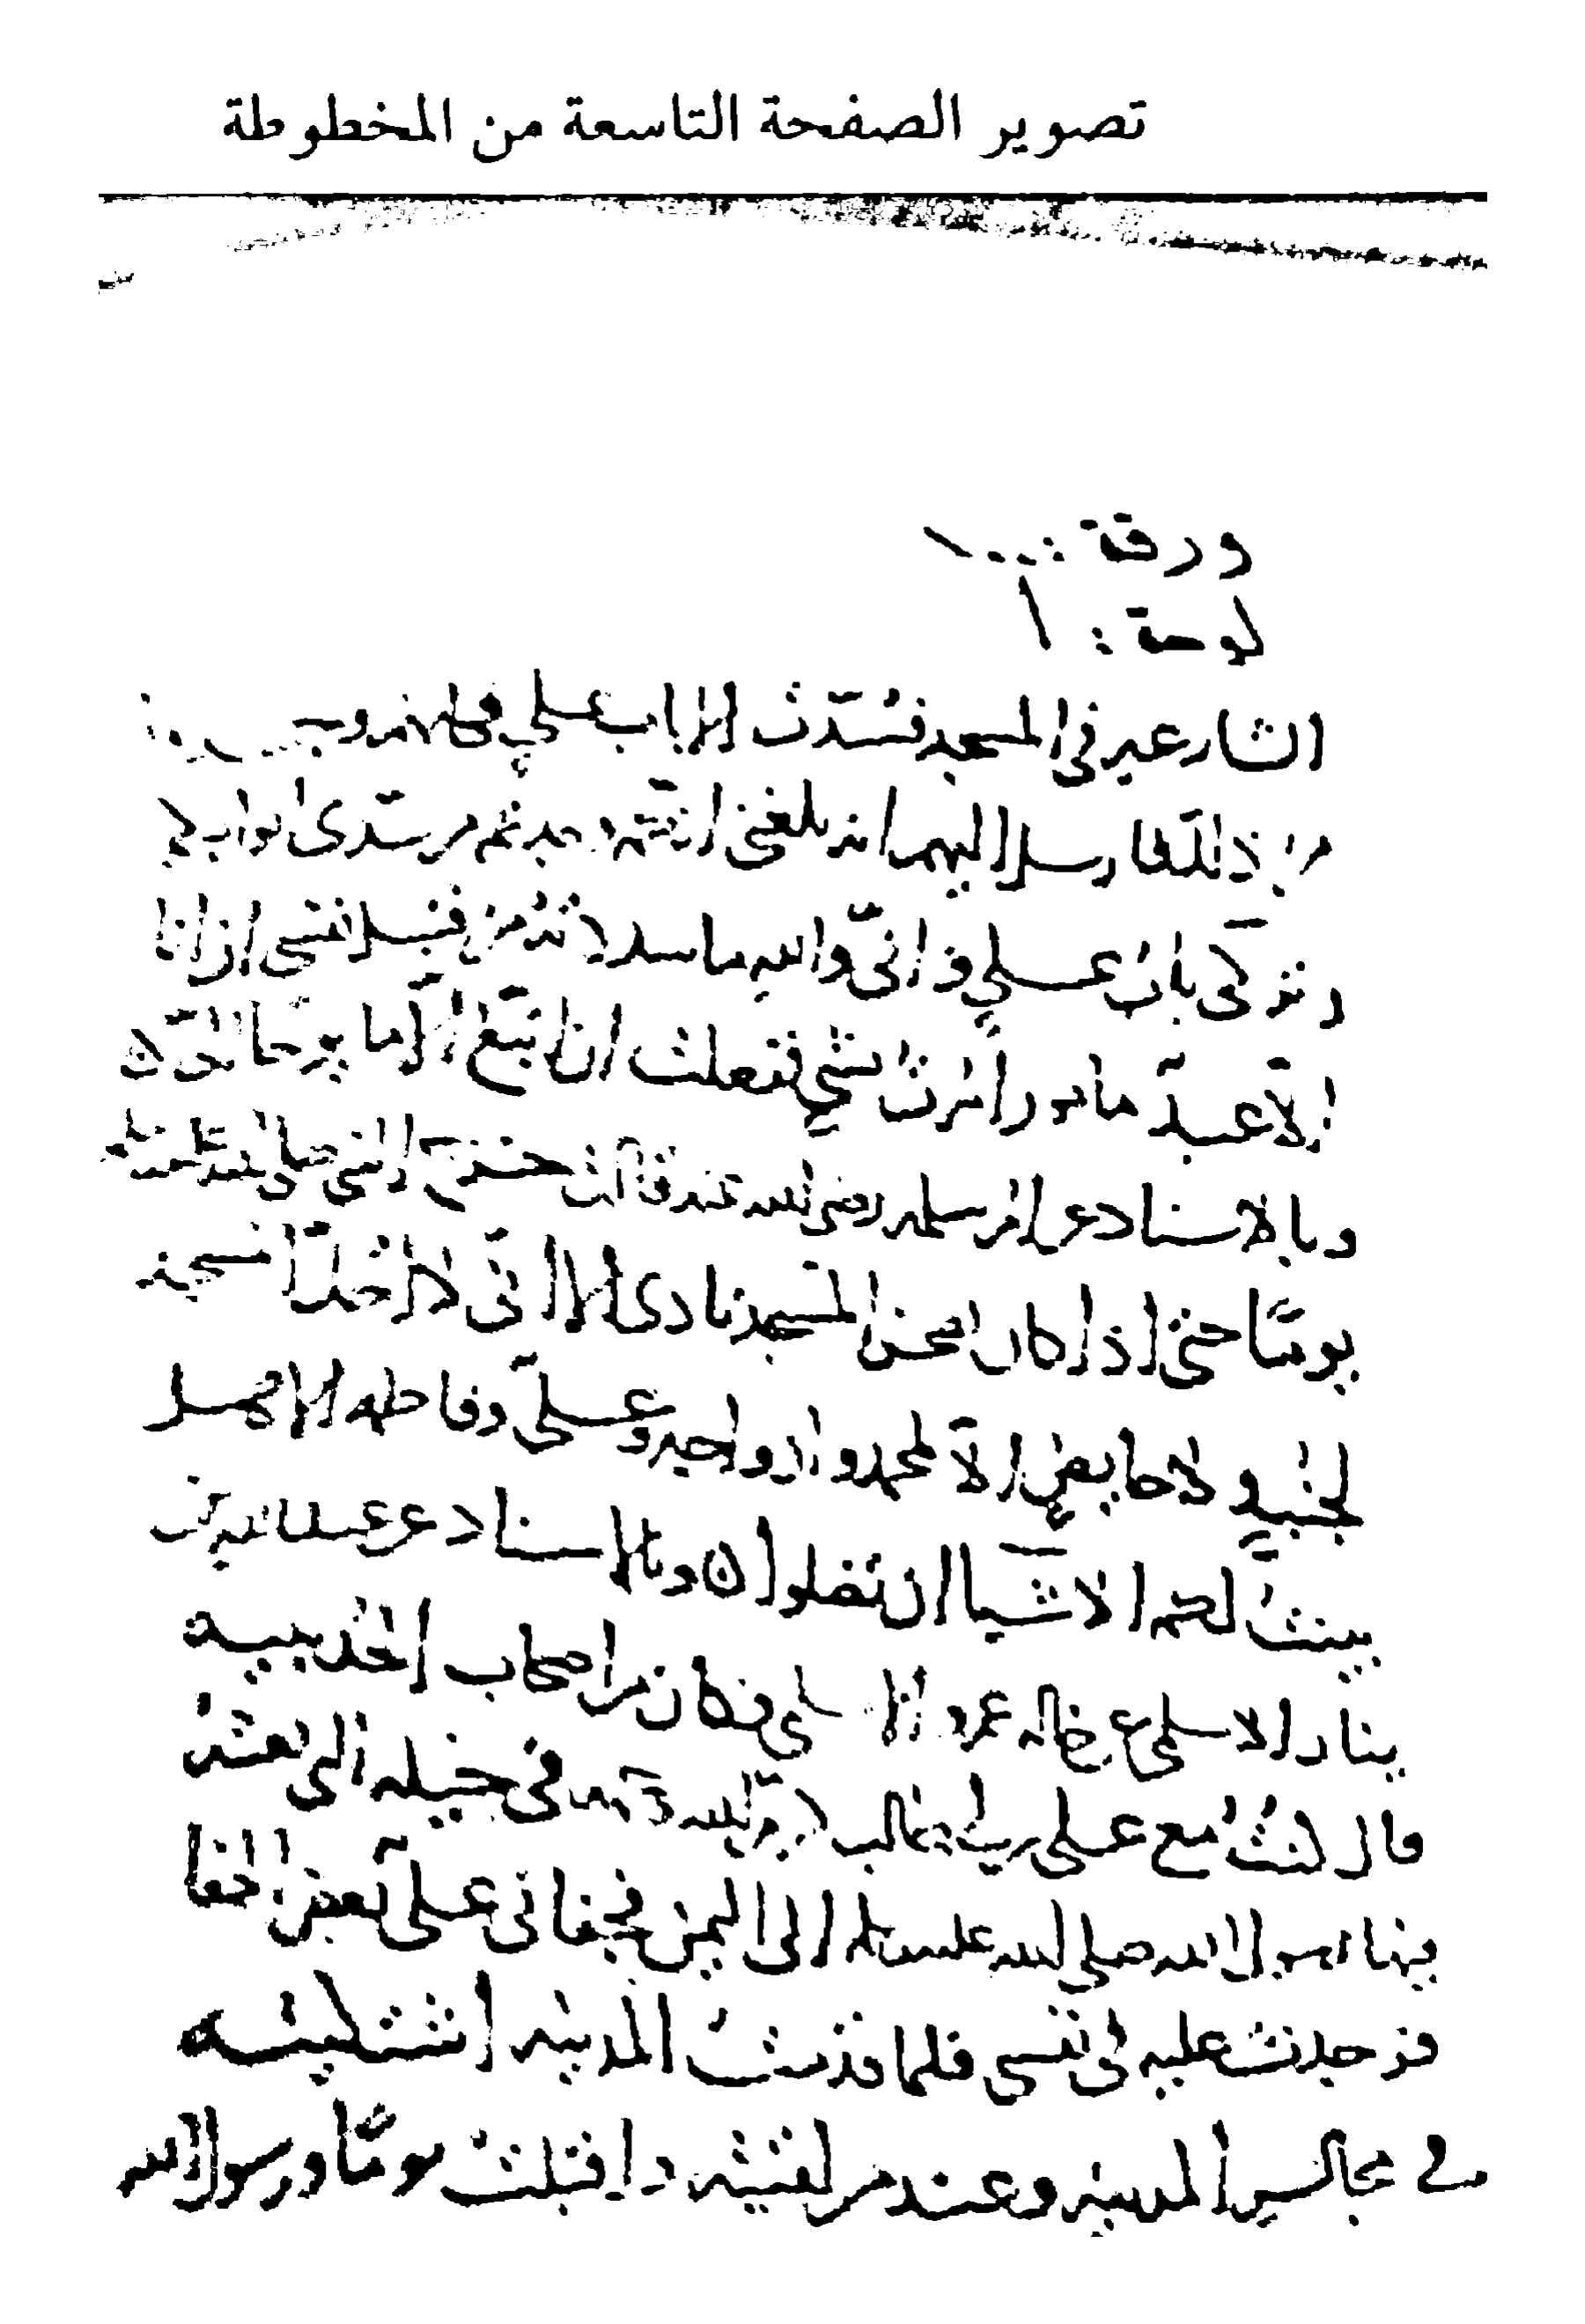 تصوير الصفحة التاسعة من المخطوطة
ورقة : ١٠٠
لوحة : ١
الشارعه في المسجد فسُدّت الا باب علي
من ذلك فارسل اليهم انه بلغني انّه وجد تم من سدّى ابوابكم
وتركى بابَ علي فانّي والله ما سددتُ من قبل نفسي ان انا
الاّ عبدٌ مامور اُمرتُ بشيٍ ففعلت ان اتبع الاّ ما يوحا اليّ ه
وبالاسناد عن ام سلمه رضي الله عنه قالت خرج النبي صلى الله عليه وسلم
يومًا حتى اذا كان بصحن المسجد نادى الا انّي لا اُحلّ المسجد
لجنبٍ ولا حايضٍ الاّ لمحمد وازواجه وعليّ وفاطمه الا هل
بينتُ لكم الاشيا ان تضلوا ه وبالاسناد عن عبد الله بن
ينار الاسلمي عن خاله عمرو الاسلمي فكان من اصحاب الحُديبيه
قال كنتُ مع علي بن ابي طالب كرّم الله وجهه في خيله التي بعثه
فيها رسول الله صلى الله عليه وسلم الى اليمن فجفاني عليّ بعضَ الجفا
فوجدتُ عليه في نفسي فلما قدمتُ المدينه اشتكيته
في مجالس المدينه وعند من لقيته واقبلت يومًا ورسول الله